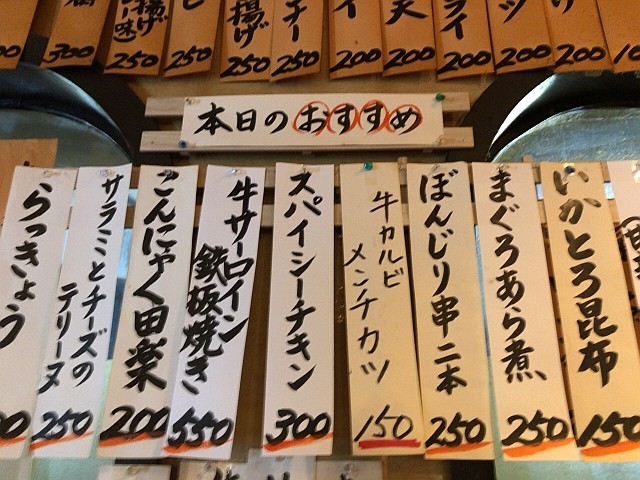 300
揚げ
250
250
揚げ
250
チー
250
イ
200
天
200
ライ
200
ツ
200
200
本日のおすすめ
いかとろ昆布
150
まぐろあら煮
250
ぼんじり串二本
250
牛カルビ
メンチカツ
150
スパイシーチキン
300
牛サーロイン
鉄板焼き
550
こんにゃく田楽
200
サラミとチーズの
テリーヌ
250
らっきょう